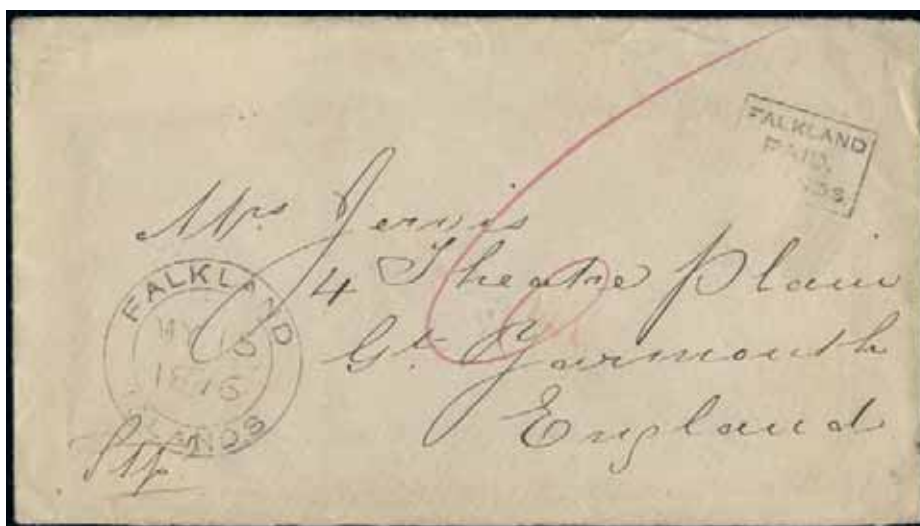 FALKLAND
PAID.
Mrs Jervis
4 Theatre Plain
Gt. Yarmouth
England
FALKLAND
MY 15
1876